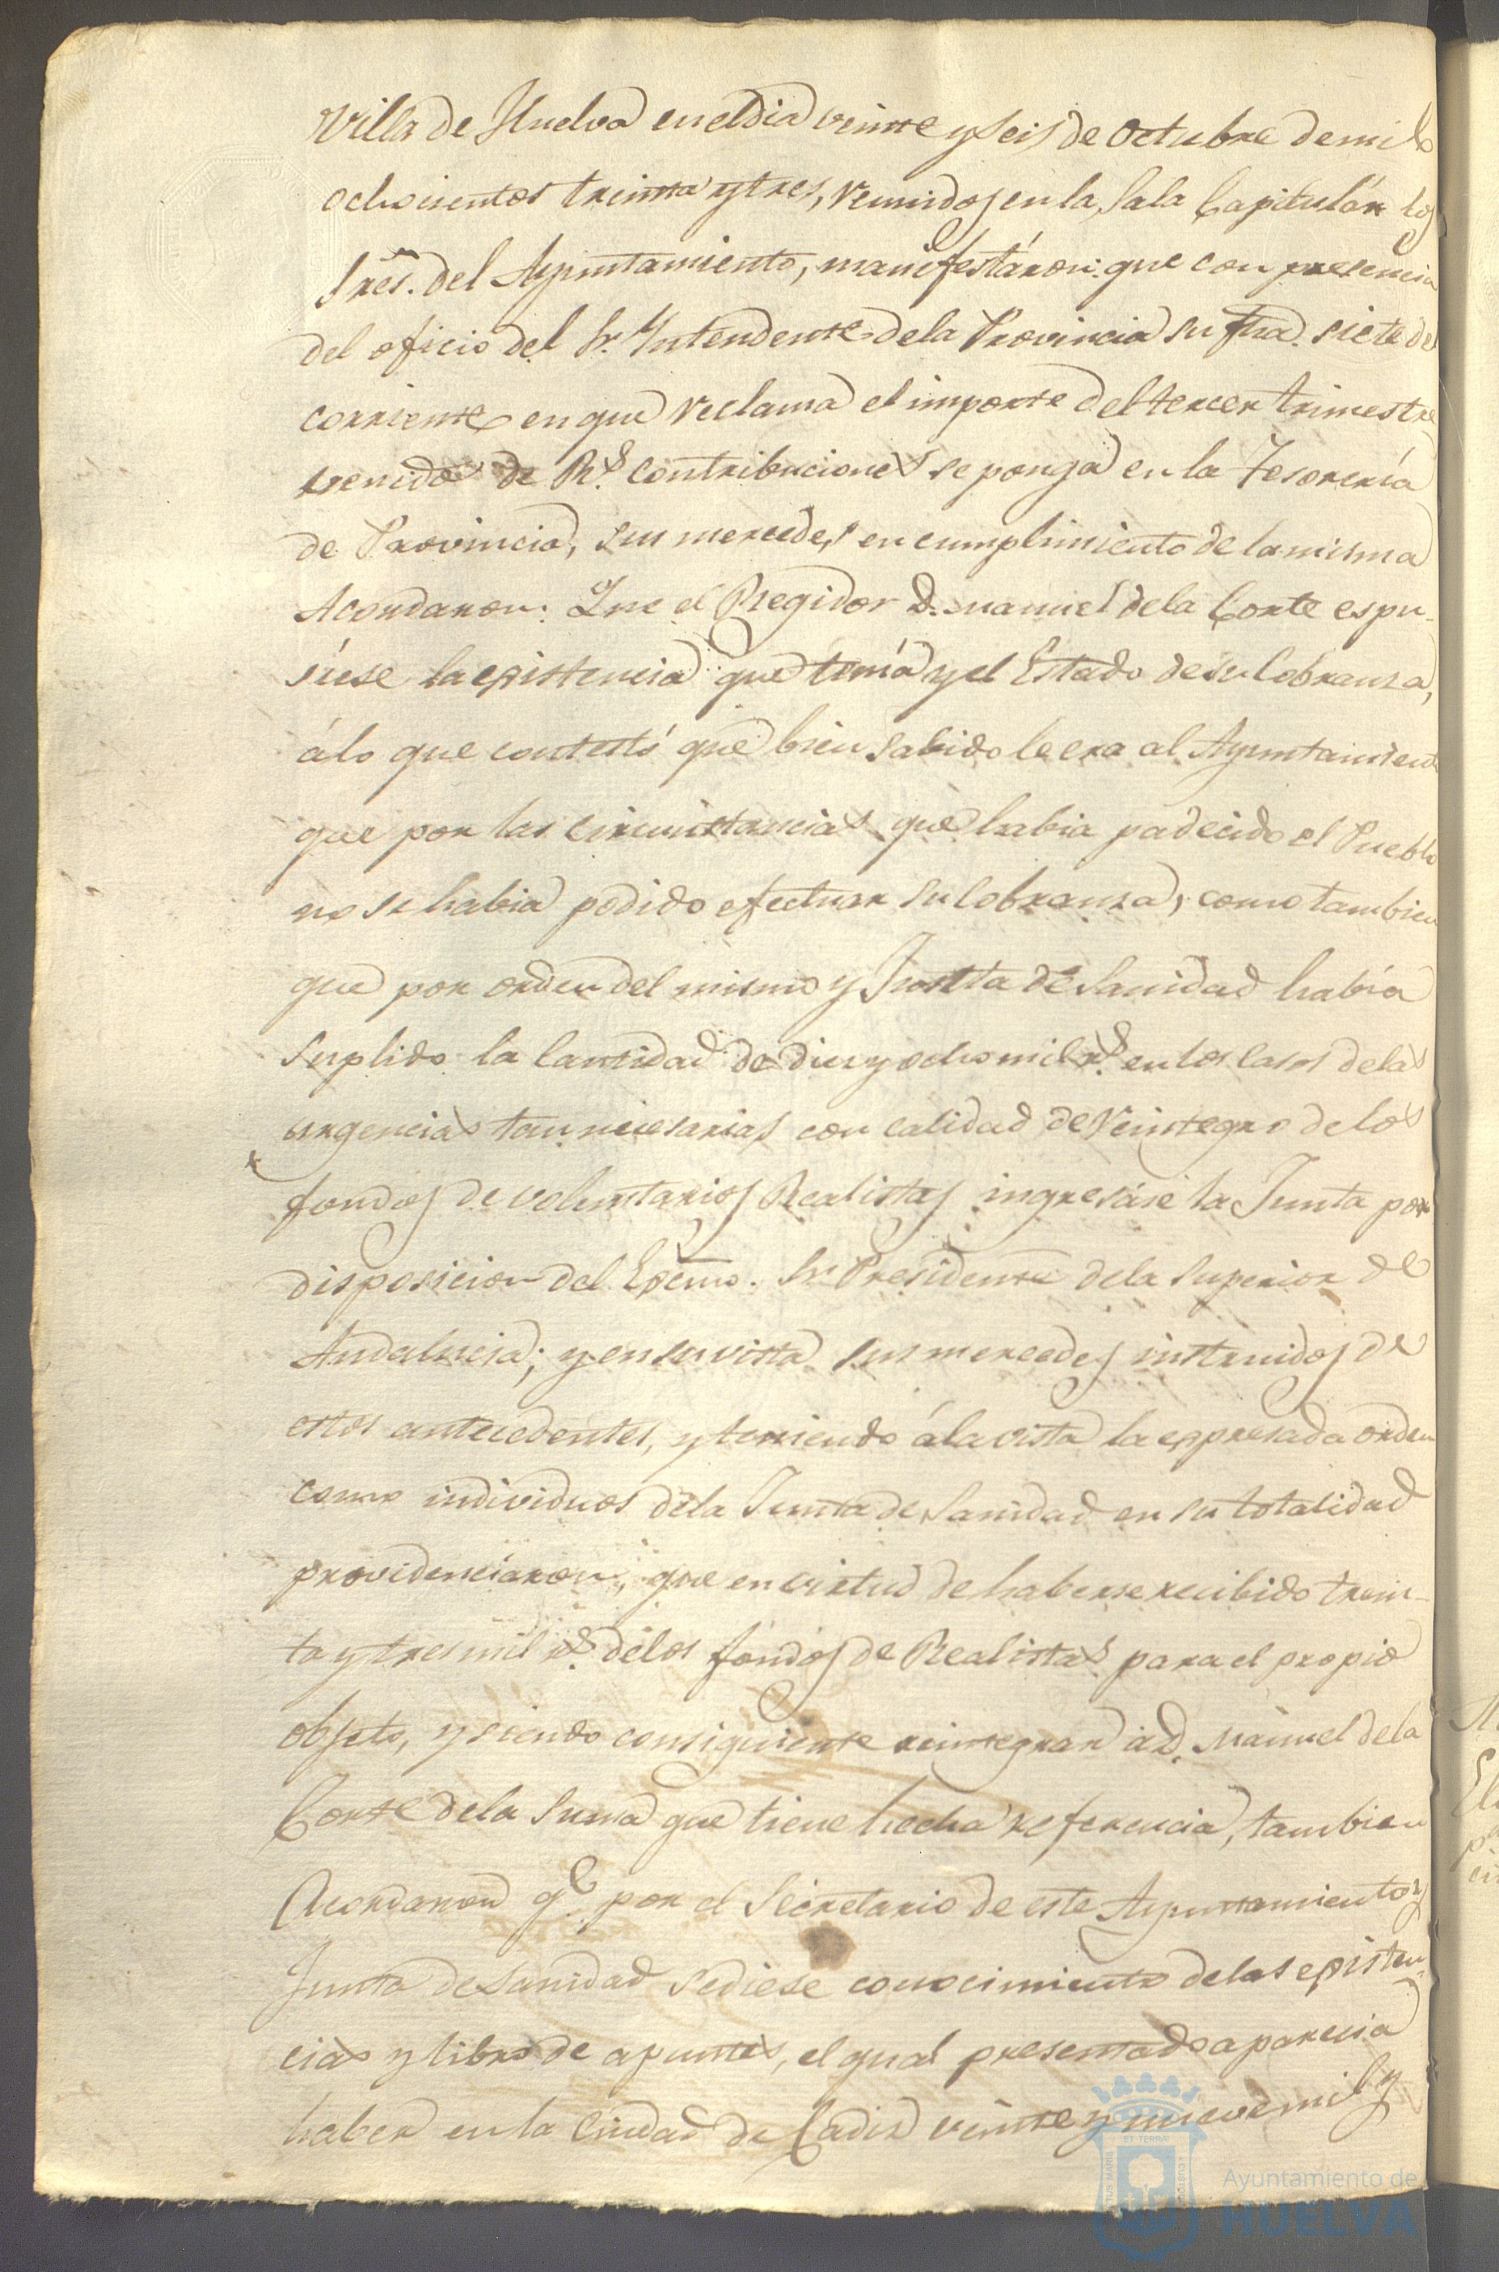 Villa de Huelva en el dia veinte y seis de Octubre de mil
ochocientos treinta y tres, reunidos en la Sala Capitulár los
Sres. del Ayuntamiento, manifestáron: que con presencia
del oficio del Sr. Yntendente de la Provincia su fha. siete del
corriente en que reclama el importe del tercer trimestre
venido de Rs. contribuciones se ponga en la Tesorería
de Provincia, sus mercedes en cumplimiento de la misma
Acordaron: Que el Regidor D. Manuel de la Corte espu-
siese la epistencia que tenía y el Estado de su Cobranza,
álo que contestó que bien sabido le era al Ayuntamiento
que por las circunstancias que habia padecido el Pueblo
no se habia podido efectuar su Cobranza, como tambien
que por orden del mismo y Junta de Sanidad había
suplido la Cantidad de diez y ocho mil rs. en los casos de las
urgencias tan necesarias con calidad de reintegro de los
fondos de voluntarios Realistas ingresáse la Junta por
disposicion del Epcmo. Sr. Presidente de la Superior de
Andalucia; y en su vista sus mercedes instruidos de
estos antecedentes, y teniendo á la vista la eppresada orden
como individuos de la Junta de Sanidad en su totalidad
providenciáron, que en virtud de haberse recibido trein-
ta y tres mil rs. de los fondos de Realistas para el propio
objeto, y siendo consiguiente reintegrar á D. Manuel de la
Corte de la Suma que tiene hecha referencia, tambien
Acordaron q.e por el Secretario de este Ayuntamiento y
Junta de Sanidad se diese conocimiento de las episten-
cias y libro de apuntes, el qual presentado aparecia
haber en la Ciudad de Cadiz veinte y nueve mil y
Ayuntamiento de
HUELVA